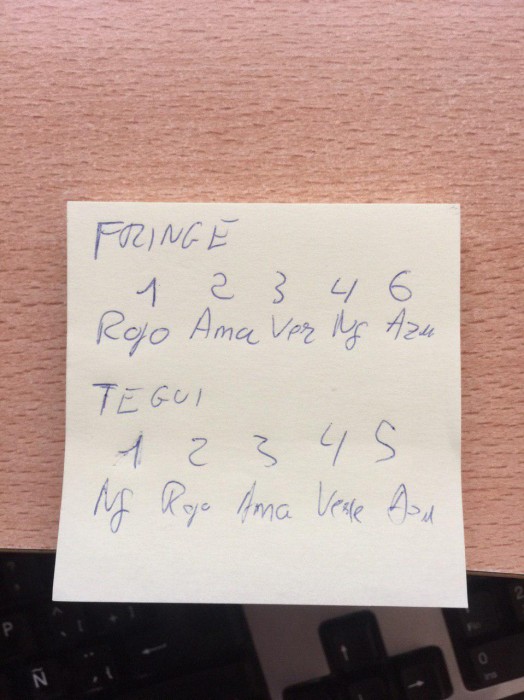 FRINGE
1 2 3 4 6
Rojo Ama Ver Ng Azu
TEGUI
1 2 3 4 5
Ng Rojo Ama Verde Azu
P
Ñ
0
Ins